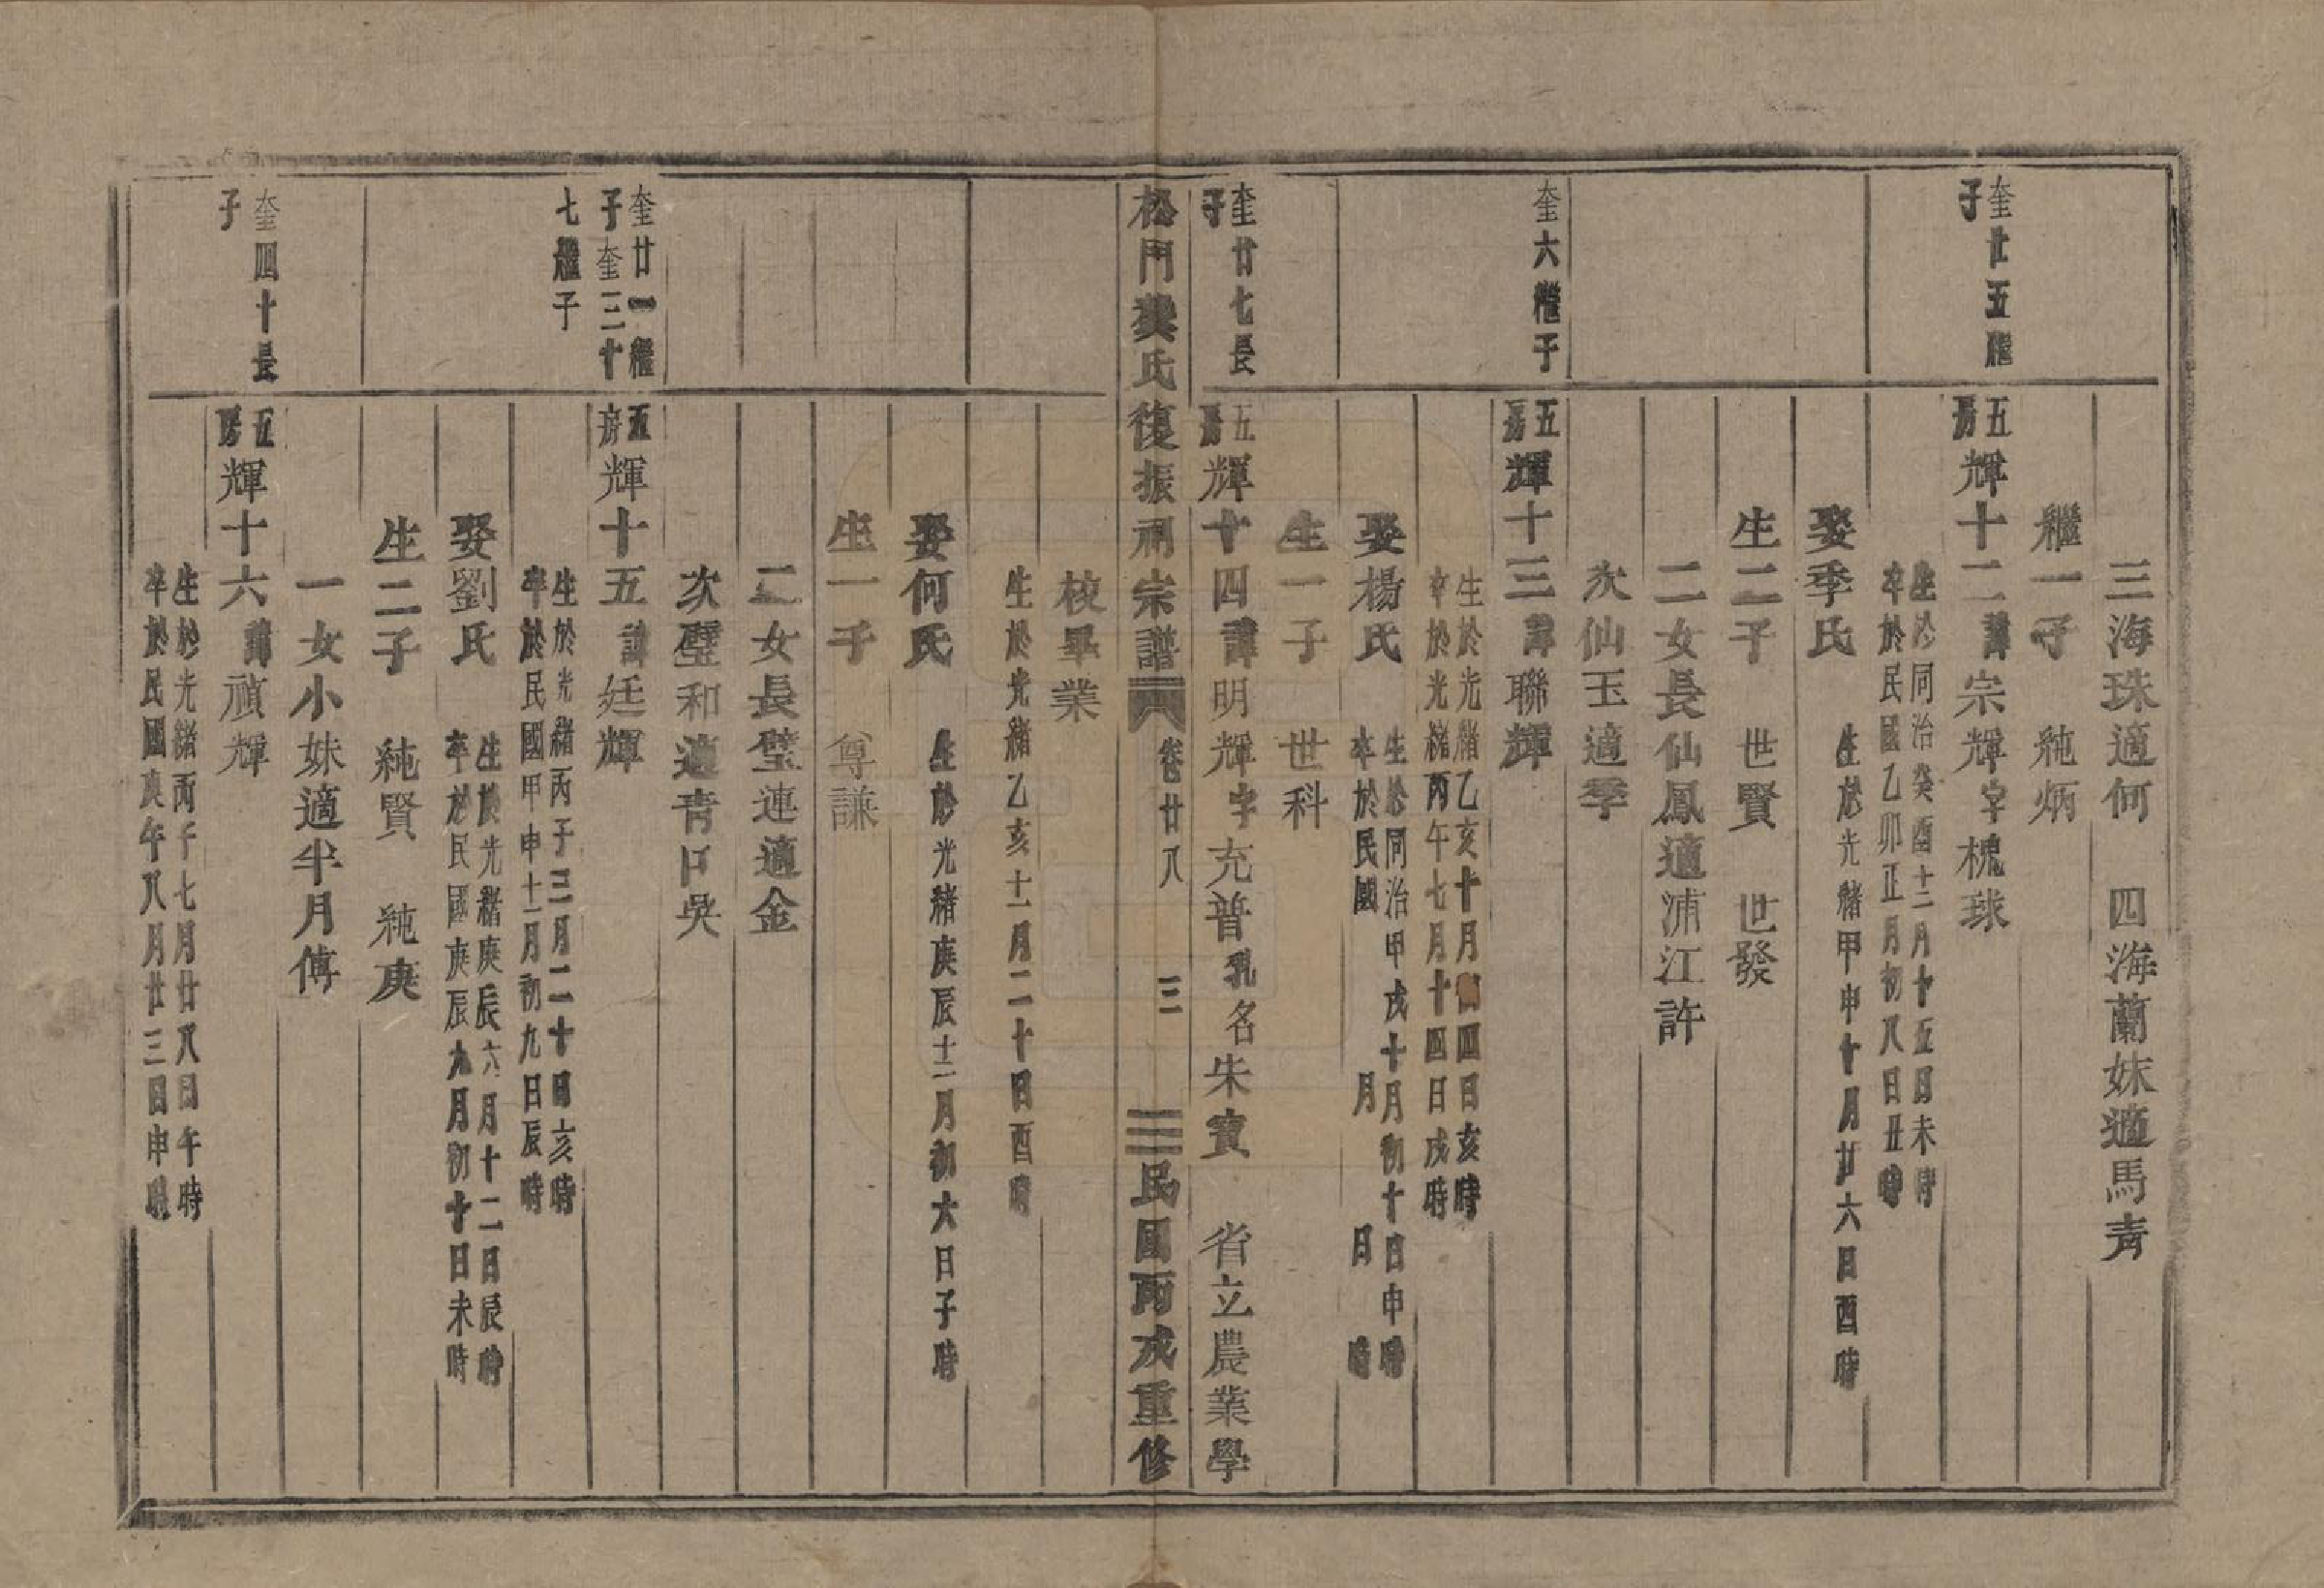 三海珠適何　四海蘭妹適馬青
繼一子　純炳
奎廿五繼子
五房輝十二諱宗輝字槐球
生於同治癸酉十二月十五日未時
卒於民國乙卯正月初八日丑時
娶季氏
生於光緒甲申十月廿六日酉時
生二子　世賢　世發
二女長仙鳳適浦江許
次仙玉適季
奎六繼子
五房輝十三諱聯輝
生於光緒乙亥十月初四日亥時
卒於光緒丙午七月十四日戌時
娶楊氏
生於同治甲戌十月初十日申時
卒於民國　月　日　時
生一子　世科
奎廿七長子
五房輝十四諱明輝字充普乳名朱寶　省立農業學
松門龔氏復振祠宗譜　卷廿八　三　民國丙戌重修
校畢業
生於光緒乙亥十一月二十日酉時
娶何氏
生於光緒庚辰十二月初六日子時
生一子　尊謙
二女長璧連適金
次璧和適青口吳
奎廿一繼子奎三十七繼子
五房輝十五諱廷輝
生於光緒丙子三月二十日亥時
卒於民國甲申十一月初九日辰時
娶劉氏
生於光緒庚辰六月十二日辰時
卒於民國庚辰九月初十日未時
生二子　純賢　純庚
一女小妹適半月傅
奎四十長子
五房輝十六諱禎輝
生於光緒丙子七月廿八日午時
卒於民國庚午八月廿三日申時